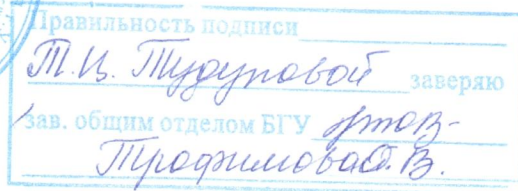 Правильность подписи
Т.Ц. Тудуповой заверяю
зав. общим отделом БГУ
Трофимова О.В.